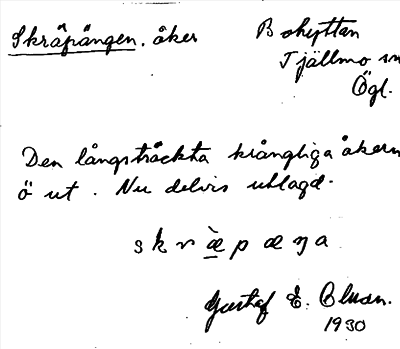 Skråpängen. åker
Bohyttan
Tjällmo sn
Ögl.
Den långsträckta krångliga åkern
ö ut. Nu delvis utlagd.
skræ̀pæŋa
Gustaf E. Blman.
1930